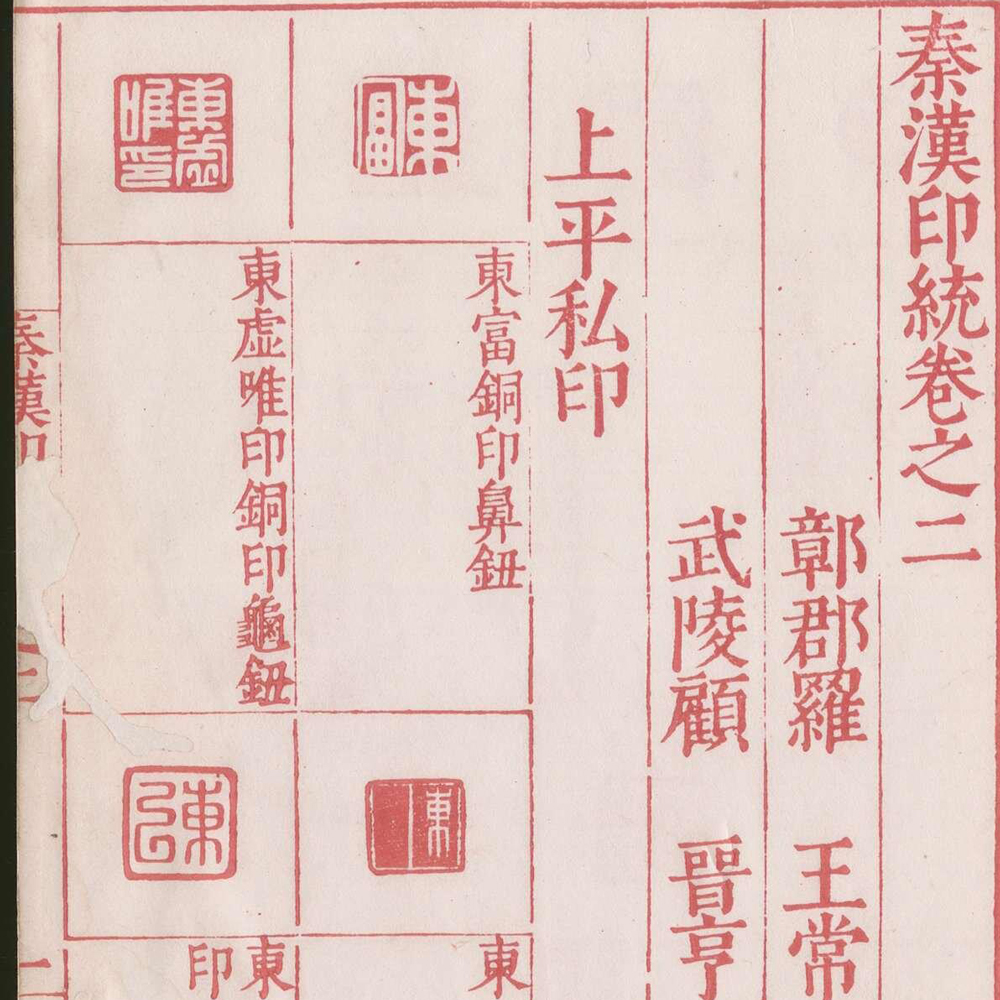 秦漢印統卷之二
鄣郡羅 王常
武陵顧 晉亨
上平私印
東富
東富銅印鼻鈕
東虛唯印
東虛唯印銅印龜鈕
東
東
東
印
秦漢印
二